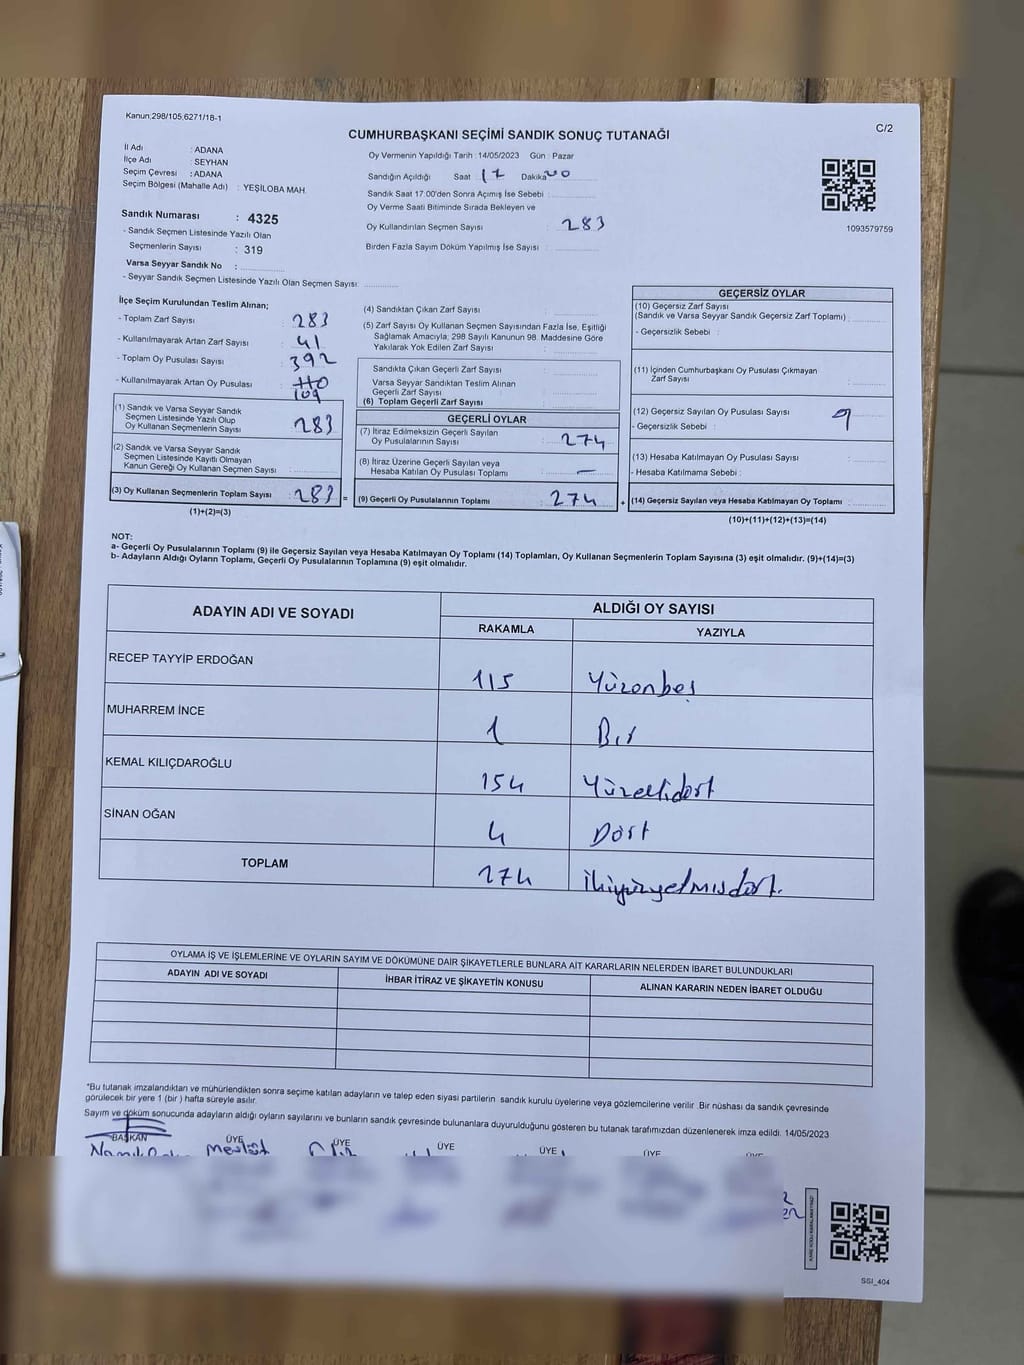 Kanun;298/105,6271/18-1
CUMHURBAŞKANI SEÇİMİ SANDIK SONUÇ TUTANAĞI
C/2
İl Adı : ADANA
İlçe Adı : SEYHAN
Seçim Çevresi : ADANA
Seçim Bölgesi (Mahalle Adı) : YEŞİLOBA MAH.
Oy Vermenin Yapıldığı Tarih : 14/05/2023 Gün : Pazar
Sandığın Açıldığı Saat 17 Dakika 00
Sandık Saat 17:00'den Sonra Açımış İse Sebebi :
Oy Verme Saati Bitiminde Sırada Bekleyen ve
Oy Kullandırılan Seçmen Sayısı : 283
Birden Fazla Sayım Döküm Yapılmış İse Sayısı :
1093579759
Sandık Numarası : 4325
- Sandık Seçmen Listesinde Yazılı Olan
Seçmenlerin Sayısı : 319
Varsa Seyyar Sandık No :
- Seyyar Sandık Seçmen Listesinde Yazılı Olan Seçmen Sayısı:
İlçe Seçim Kurulundan Teslim Alınan;
- Toplam Zarf Sayısı : 283
- Kullanılmayarak Artan Zarf Sayısı : 41
- Toplam Oy Pusulası Sayısı : 392
- Kullanılmayarak Artan Oy Pusulası : 110
109
(1) Sandık ve Varsa Seyyar Sandık
Seçmen Listesinde Yazılı Olup
Oy Kullanan Seçmenlerin Sayısı : 283
(2) Sandık ve Varsa Seyyar Sandık
Seçmen Listesinde Kayıtlı Olmayan
Kanun Gereği Oy Kullanan Seçmen Sayısı :
(3) Oy Kullanan Seçmenlerin Toplam Sayısı : 283 =
(1)+(2)=(3)
(4) Sandıktan Çıkan Zarf Sayısı :
(5) Zarf Sayısı Oy Kullanan Seçmen Sayısından Fazla İse, Eşitliği
Sağlamak Amacıyla; 298 Sayılı Kanunun 98. Maddesine Göre
Yakılarak Yok Edilen Zarf Sayısı :
Sandıkta Çıkan Geçerli Zarf Sayısı :
Varsa Seyyar Sandıktan Teslim Alınan
Geçerli Zarf Sayısı :
(6) Toplam Geçerli Zarf Sayısı :
GEÇERLİ OYLAR
(7) İtiraz Edilmeksizin Geçerli Sayılan
Oy Pusulalarının Sayısı : 274
(8) İtiraz Üzerine Geçerli Sayılan veya
Hesaba Katılan Oy Pusulası Toplamı : —
(9) Geçerli Oy Pusulalarının Toplamı : 274 +
GEÇERSİZ OYLAR
(10) Geçersiz Zarf Sayısı
(Sandık ve Varsa Seyyar Sandık Geçersiz Zarf Toplamı) :
- Geçersizlik Sebebi :
(11) İçinden Cumhurbaşkanı Oy Pusulası Çıkmayan
Zarf Sayısı :
(12) Geçersiz Sayılan Oy Pusulası Sayısı : 9
- Geçersizlik Sebebi :
(13) Hesaba Katılmayan Oy Pusulası Sayısı :
- Hesaba Katılmama Sebebi :
(14) Geçersiz Sayılan veya Hesaba Katılmayan Oy Toplamı :
(10)+(11)+(12)+(13)=(14)
NOT:
a- Geçerli Oy Pusulalarının Toplamı (9) ile Geçersiz Sayılan veya Hesaba Katılmayan Oy Toplamı (14) Toplamları, Oy Kullanan Seçmenlerin Toplam Sayısına (3) eşit olmalıdır. (9)+(14)=(3)
b- Adayların Aldığı Oyların Toplamı, Geçerli Oy Pusulalarının Toplamına (9) eşit olmalıdır.
ADAYIN ADI VE SOYADI ALDIĞI OY SAYISI
RAKAMLA YAZIYLA
RECEP TAYYİP ERDOĞAN 115 Yüzonbeş
MUHARREM İNCE 1 Bir
KEMAL KILIÇDAROĞLU 154 Yüzellidört
SİNAN OĞAN 4 Dört
TOPLAM 274 ikiyüzyetmişdört.
OYLAMA İŞ VE İŞLEMLERİNE VE OYLARIN SAYIM VE DÖKÜMÜNE DAİR ŞİKAYETLERLE BUNLARA AİT KARARLARIN NELERDEN İBARET BULUNDUKLARI
ADAYIN ADI VE SOYADI İHBAR İTİRAZ VE ŞİKAYETİN KONUSU ALINAN KARARIN NEDEN İBARET OLDUĞU
*Bu tutanak imzalandıktan ve mühürlendikten sonra seçime katılan adayların ve talep eden siyasi partilerin sandık kurulu üyelerine veya gözlemcilerine verilir. Bir nüshası da sandık çevresinde
görülecek bir yere 1 (bir ) hafta süreyle asılır.
Sayım ve döküm sonucunda adayların aldığı oyların sayılarını ve bunların sandık çevresinde bulunanlara duyurulduğunu gösteren bu tutanak tarafımızdan düzenlenerek imza edildi. 14/05/2023
BAŞKAN ÜYE ÜYE ÜYE ÜYE ÜYE ÜYE
Mevlüt
SSI_404